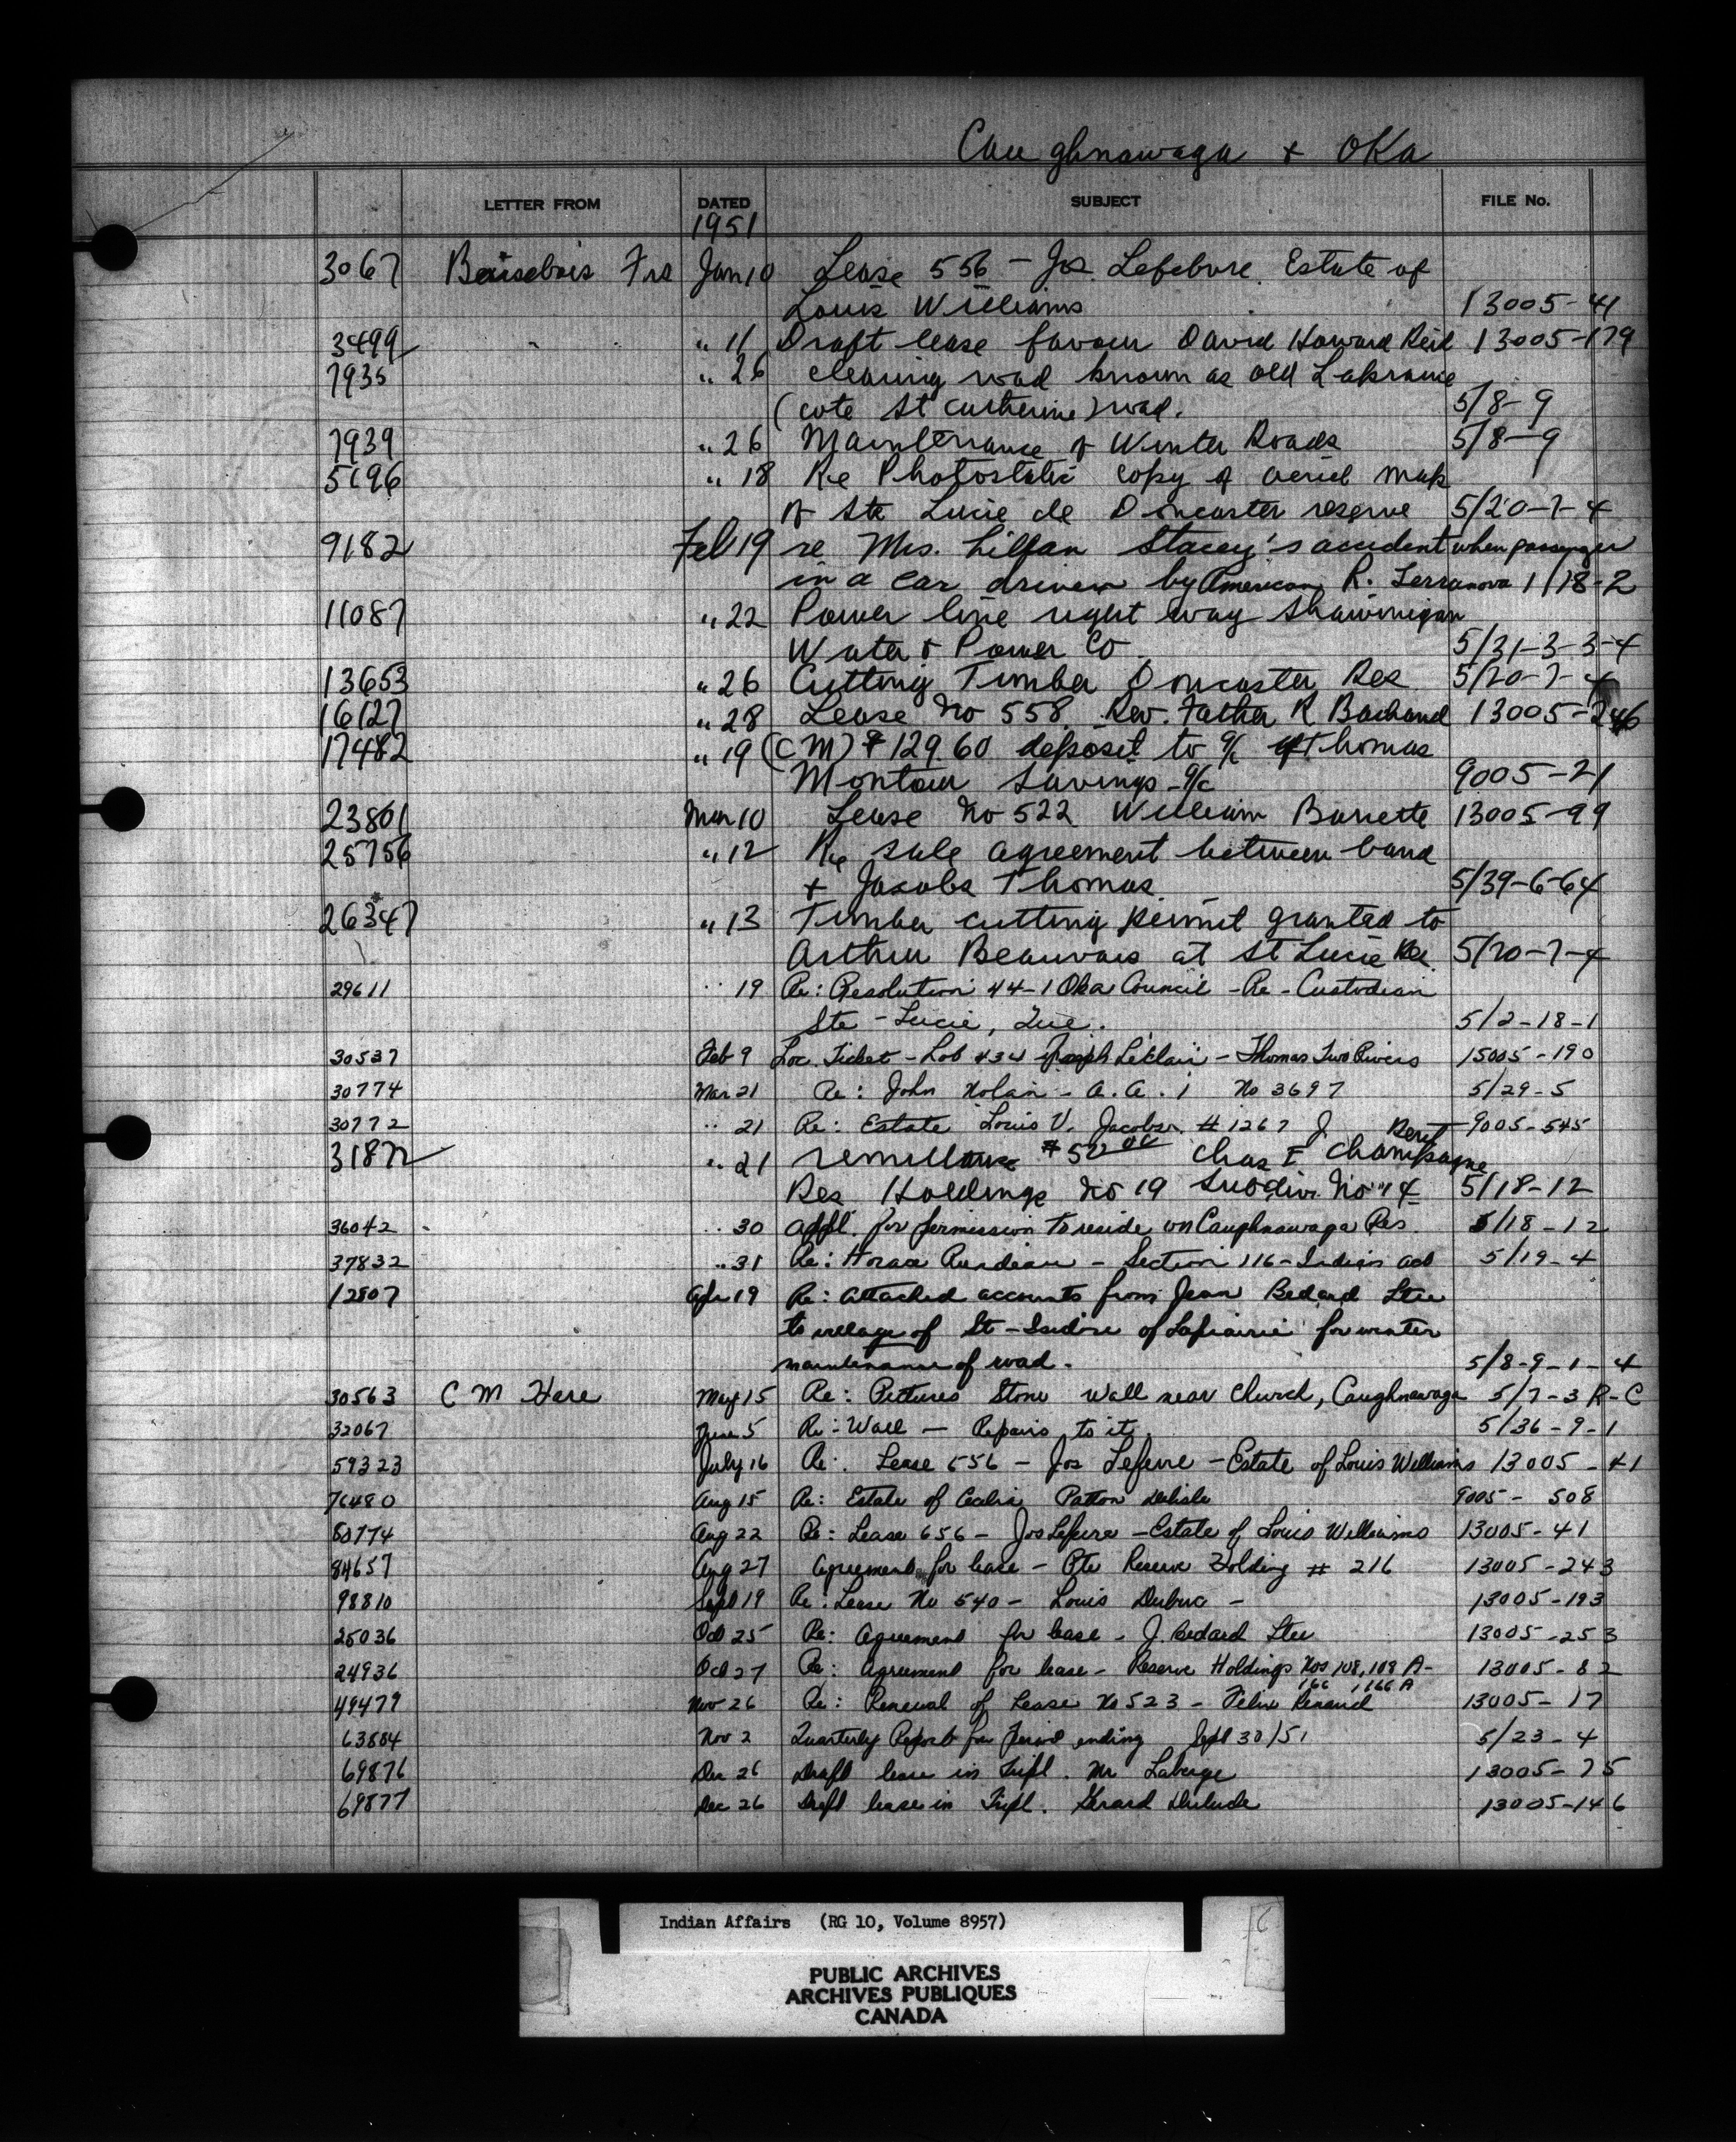 Caughnawaga + OKa
LETTER FROM DATED SUBJECT FILE No.
1951
3067 Fra Jan 10 Lease 556 - Jos. Lefebvre Estate of
Louis Williams 13005-41
3499 " " 11 Draft lease favour David Howard Reid 13005-179
7935 " 26 clearing road known as old
(cote St Catherine) road. 5/8-9
7939 " 26 Maintenance of Winter Roads 5/8-9
5196 " 18 Re Photostatic copy of aeriel map
of Ste Lucie de Doncaster reserve 5/20-7-4
9182 Feb 19 re Mrs. Lillian Stacey's accident when passenger
in a car driven by American R. Terranova 1/18-2
11087 " 22 Power line right way Shawinigan
Water & Power Co. 5/31-3-3-4
13653 " 26 Cutting Timber Doncaster Res 5/20-7-4
16127 " 28 Lease No 558 Rev. Father R Bachand 13005-246
17482 " 19 (CM) $12960 deposit to a/c of Thomas
Montour Savings a/c 9005-21
23801 Mar 10 Lease No 522 William Barrette 13005-99
25756 " 12 Re sale agreement between band
+ Jacobs Thomas 5/39-6-64
26347 " 13 Timber cutting permit granted to
Arthur Beauvais at St Lucie Res. 5/20-7-4
29611 " 19 Re: Resolution 44-1 Oka Council - Re - Custodian
Ste-Lucie, Que. 5/2-18-1
30537 Feb 9 Loc. Ticket - Lot 434 Joseph Leclair - Thomas Two Rivers 15005-190
30774 Mar 21 Re: John Nolan - A.A. 1 No 3697 5/29-5
30772 " 21 Re: Estate Louis V. Jacobs. #1267 J 9005-545
31872 " 21 remittance $50 00 Chas E Champagne Rent
Res Holdings No 19 Subdiv. No 14 5/18-12
36042 " 30 appl. for permission to reside on Caughnawaga Res. 5/18-12
37832 " 31 Re: Horace - Section 116 - Indian act 5/19-4
12807 Apr 19 Re: Attached accounts from Jean Bedard Ltee
to village of St-Isidore of Laprairie for winter
maintenance of road. 5/8-9-1-4
30563 C M Hare May 15 Re: Pictures Stone Wall near Church, Caughnawaga 5/7-3 R-C
32067 June 5 Re: Wall - Repairs to it. 5/36-9-1
59323 July 16 Re: Lease 556 - Jos Lefevre - Estate of Louis Williams 13005-41
76480 Aug 15 Re: Estate of Cecelia Patton Delisle 9005-508
80774 Aug 22 Re: Lease 656 - Jos Lefevre - Estate of Louis Williams 13005-41
84657 Aug 27 Agreement for lease - Pte Reserve Holding # 216 13005-243
98810 Sept 19 Re: Lease No 540 - Louis Dubuc - 13005-193
25036 Oct 25 Re: Agreement for lease - J. Bedard Ltee 13005-253
24936 Oct 27 Re: Agreement for lease - Reserve Holdings Nos 108, 108 A- 13005-82
166, 166 A
49479 Nov 26 Re: Renewal of Lease No 523 - Felix Renaud 13005-17
63884 Nov 2 Quarterly Report for Period ending Sept 30/51 5/23-4
69876 Dec 26 Draft lease in Tripl. Mr Laberge 13005-75
69877 Dec 26 Draft lease in Tripl. Gerard Dulude 13005-146
Indian Affairs (RG 10, Volume 8957)
PUBLIC ARCHIVES
ARCHIVES PUBLIQUES
CANADA